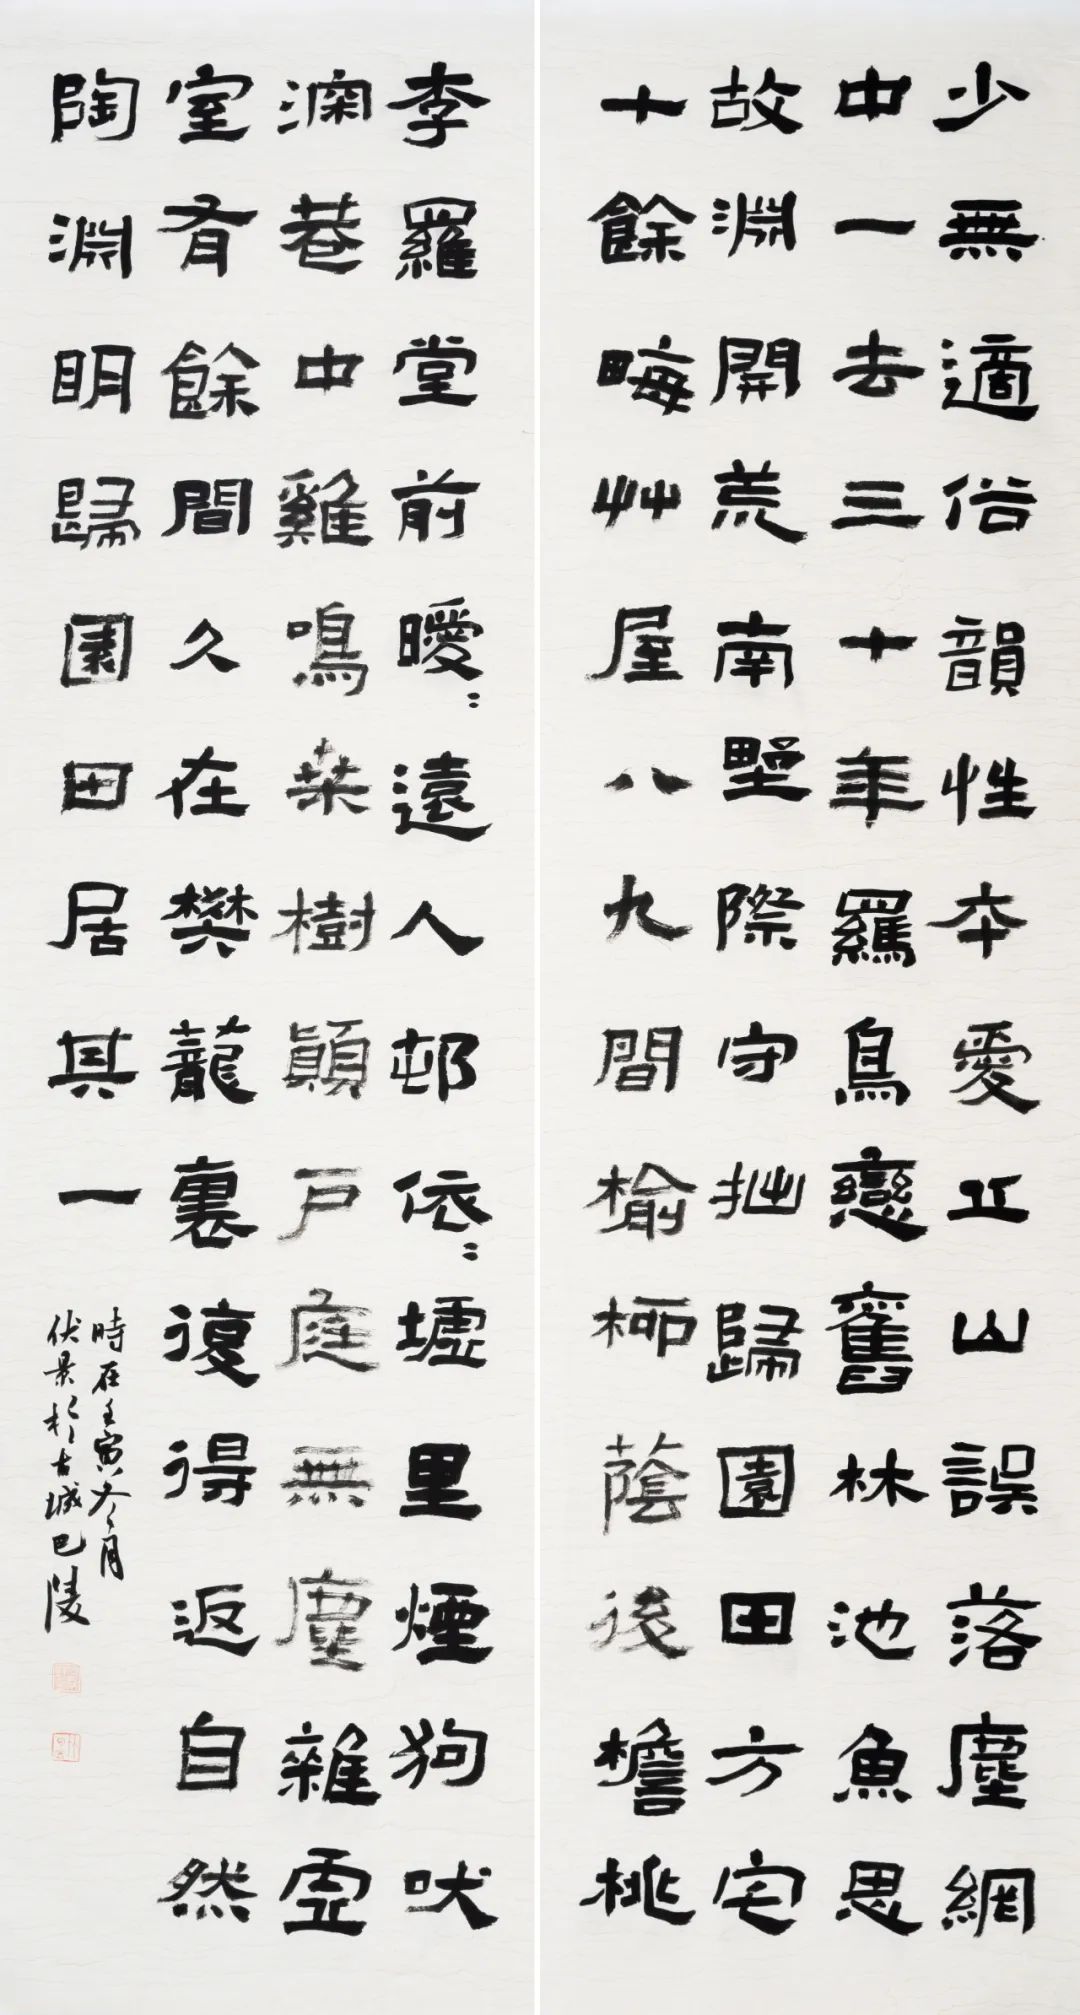 少無適俗韻性本愛丘山誤落塵網
中一去三十年羈鳥戀舊林池魚思
故淵開荒南墅際守拙歸園田方宅
十餘畮艸屋八九間榆柳蔭後檐桃
李羅堂前曖〻遠人邨依〻墟里煙狗吠
深巷中雞鳴桑樹顛戶庭無塵雜虛
室有餘間久在樊籠裏復得返自然
陶淵明歸園田居其一
時在壬寅冬月
伏景於古城巴陵